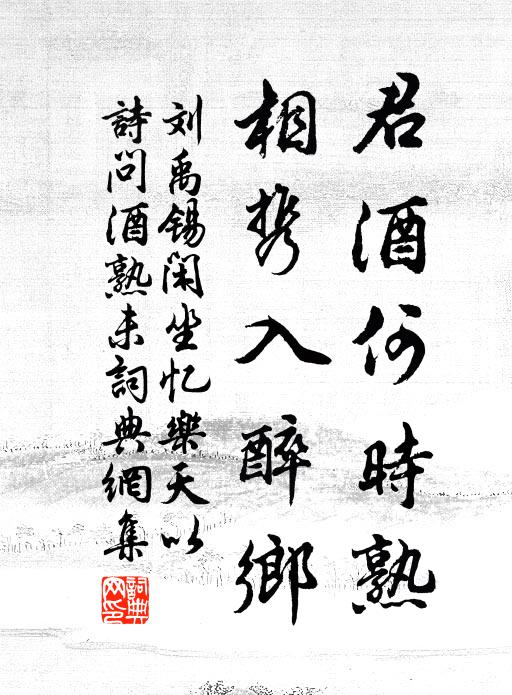 君酒何時熟
相携入醉鄉
刘禹锡闲坐忆樂天以
詩问酒熟未詞典網集